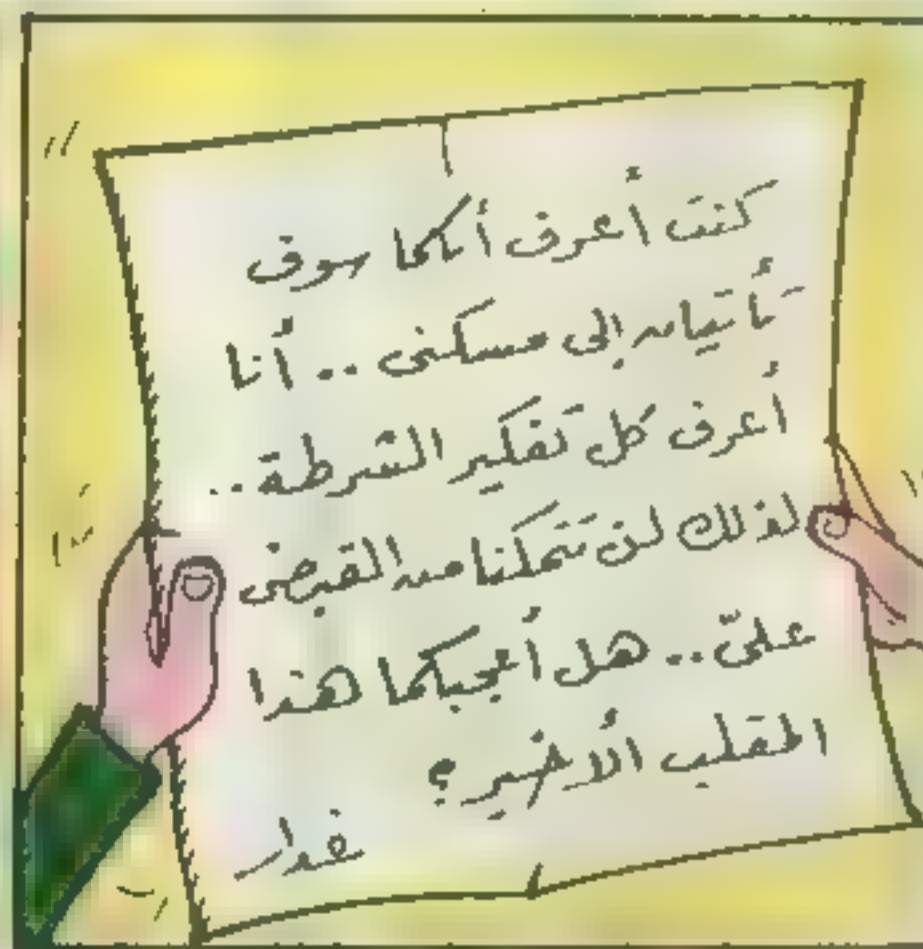 كنت أعرف أنكما سوف
تأتيان إلى مسكنى .. أنا
أعرف كل تفكير الشرطة ..
لذلك لن تتمكنا من القبض
علىّ .. هل أعجبكما هذا
المقلب الأخير ؟